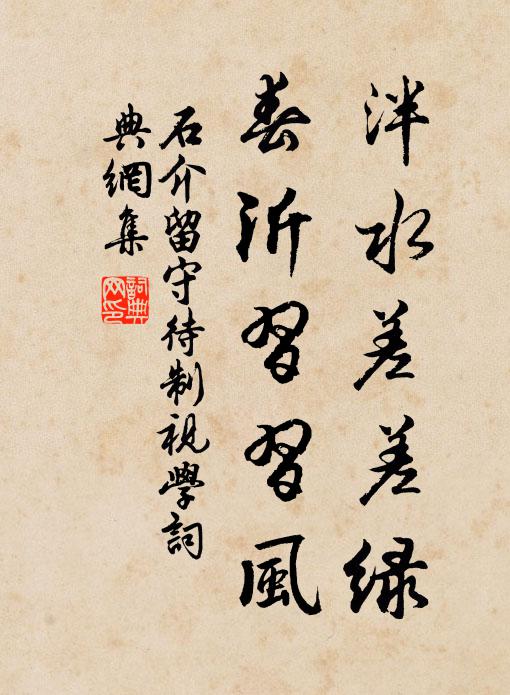 泮水差差綠
春沂習習風
石介留守待制視學詞
典網集
詞典網印